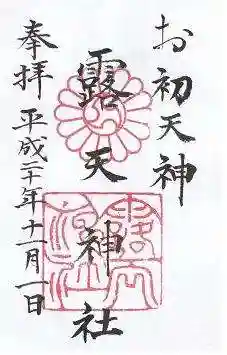 お初天神
露天神社
奉拝 平成二十年十一月一日